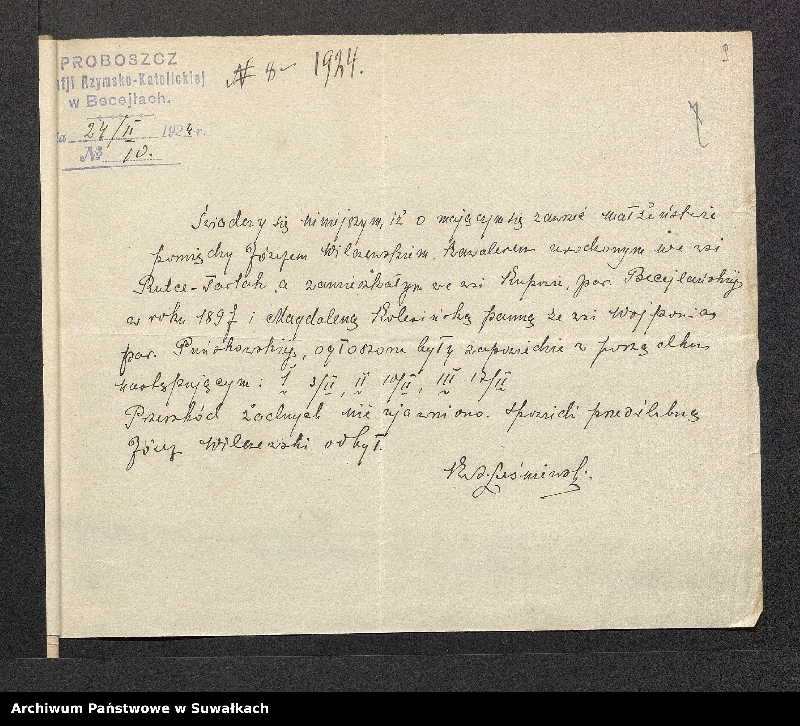 PROBOSZCZ
fji Rzymsko-Katolickiej
w Becejłach.
24/II 1924 r.
№ 10.
№ 8 - 1924.
9
7
Świadczy się niniejszym, iż o mającym się zawrzeć małżeństwie
pomiędzy Józefem Wilczewskim, kawalerem urodzonym we wsi
Rutce-Tartak, a zamieszkałym we wsi Kupowo, par. Becejlańskiej
w roku 1897 i Magdaleną Kolesińską panną ze wsi Wojponie
par. Puńskowskiej, ogłoszone były zapowiedzie w porządku
następującym: I 3/II, II 10/II, III 17/II
Przeszkód żadnych nie ujawniono. Spowiedź przedślubną
Józef Wilczewski odbył.
Ks.
Archiwum Państwowe w Suwałkach